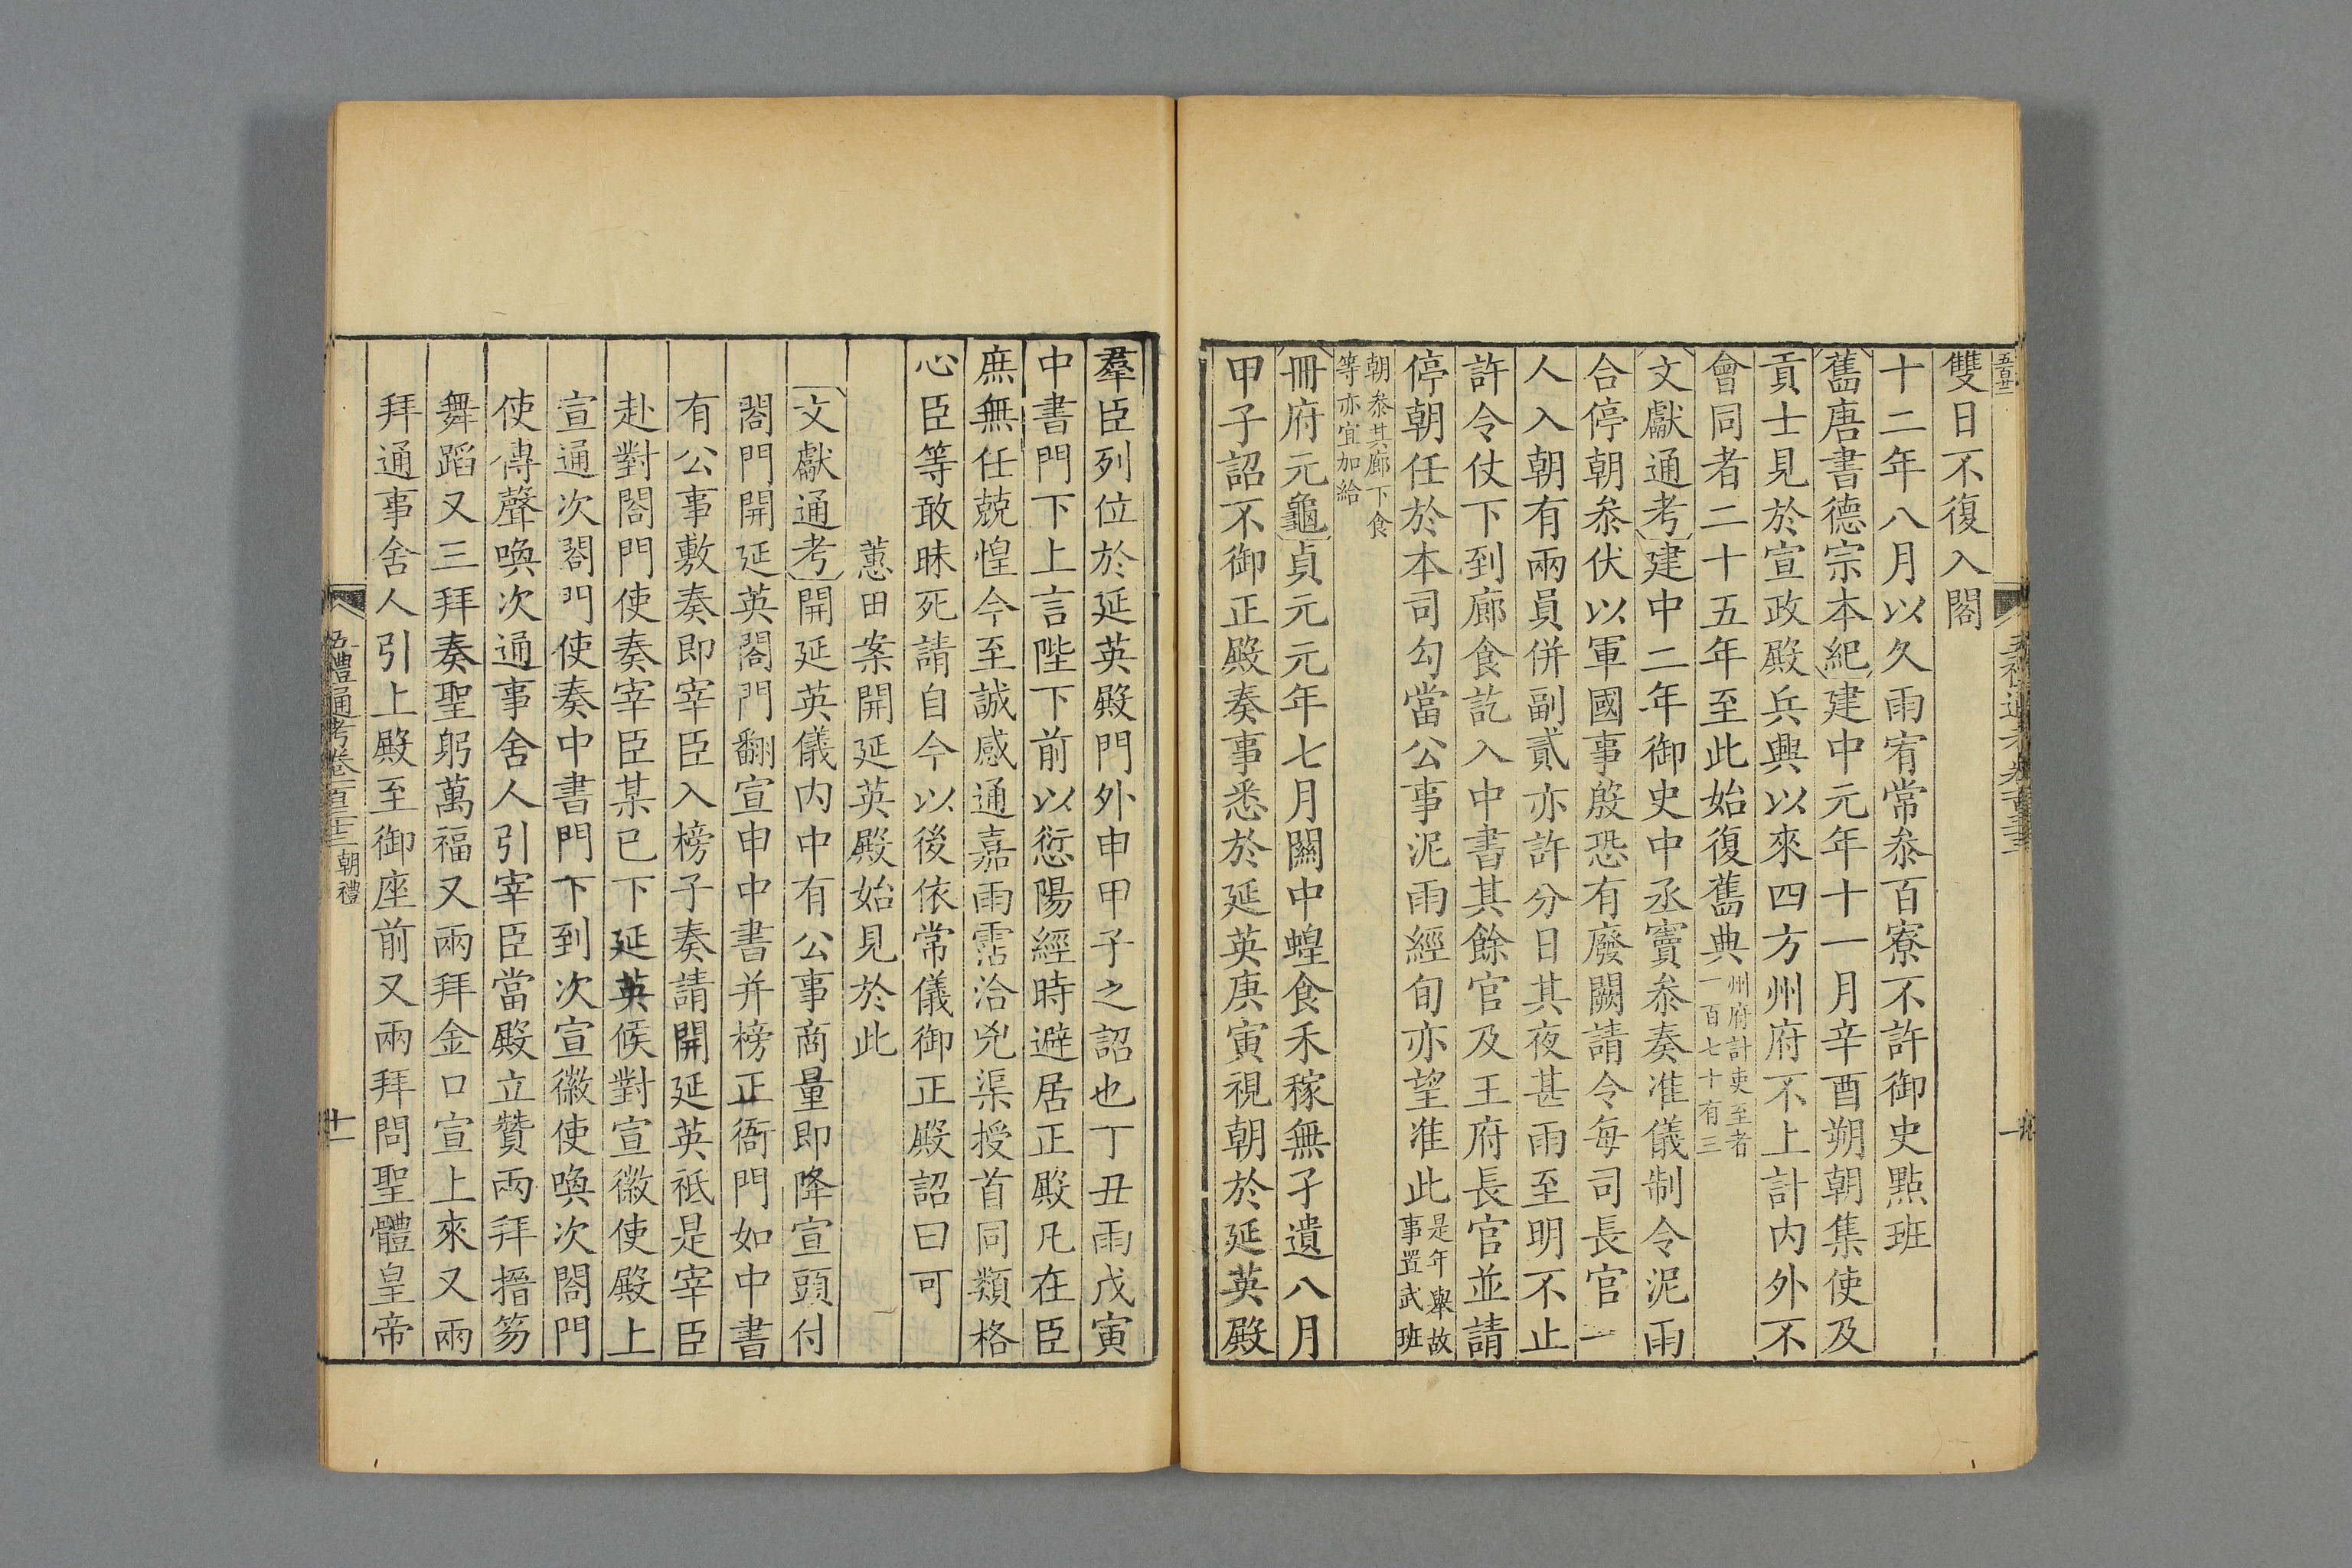 雙日不復入閤
十二年八月以久雨宥常叅百寮不許御史點班
舊唐書德宗本紀建中元年十一月辛酉朔朝集使及
貢士見於宣政殿兵興以來四方州府不上計内外不
會同者二十五年至此始復舊典州府計吏至者一百七十有三
文獻通考建中二年御史中丞竇叅奏准儀制令泥雨
合停朝叅伏以軍國事殷恐有廢闕請令每司長官一
人入朝有兩員併副貳亦許分日其夜甚雨至明不止
許令仗下到廊食訖入中書其餘官及王府長官並請
停朝任於本司勾當公事泥雨經旬亦望准此是年舉故事置武班
朝叅其廊下食等亦宜加給
冊府元龜貞元元年七月關中蝗食禾稼無孑遺八月
甲子詔不御正殿奏事悉於延英庚寅視朝於延英殿
羣臣列位於延英殿門外申甲子之詔也丁丑雨戊寅
中書門下上言陛下前以愆陽經時避居正殿凡在臣
庶無任兢惶今至誠感通嘉雨霑洽兇渠授首同類格
心臣等敢昧死請自今以後依常儀御正殿詔曰可
蕙田案開延英殿始見於此
文獻通考開延英儀内中有公事商量即降宣頭付
閤門開延英閤門翻宣申中書并榜正衙門如中書
有公事敷奏即宰臣入榜子奏請開延英祗是宰臣
赴對閤門使奏宰臣某已下延英候對宣徽使殿上
宣通次閤門使奏中書門下到次宣徽使喚次閤門
使傳聲喚次通事舍人引宰臣當殿立贊兩拜搢笏
舞蹈又三拜奏聖躬萬福又兩拜金口宣上來又兩
拜通事舍人引上殿至御座前又兩拜問聖體皇帝
五禮通考卷一百三十二 朝禮
十一